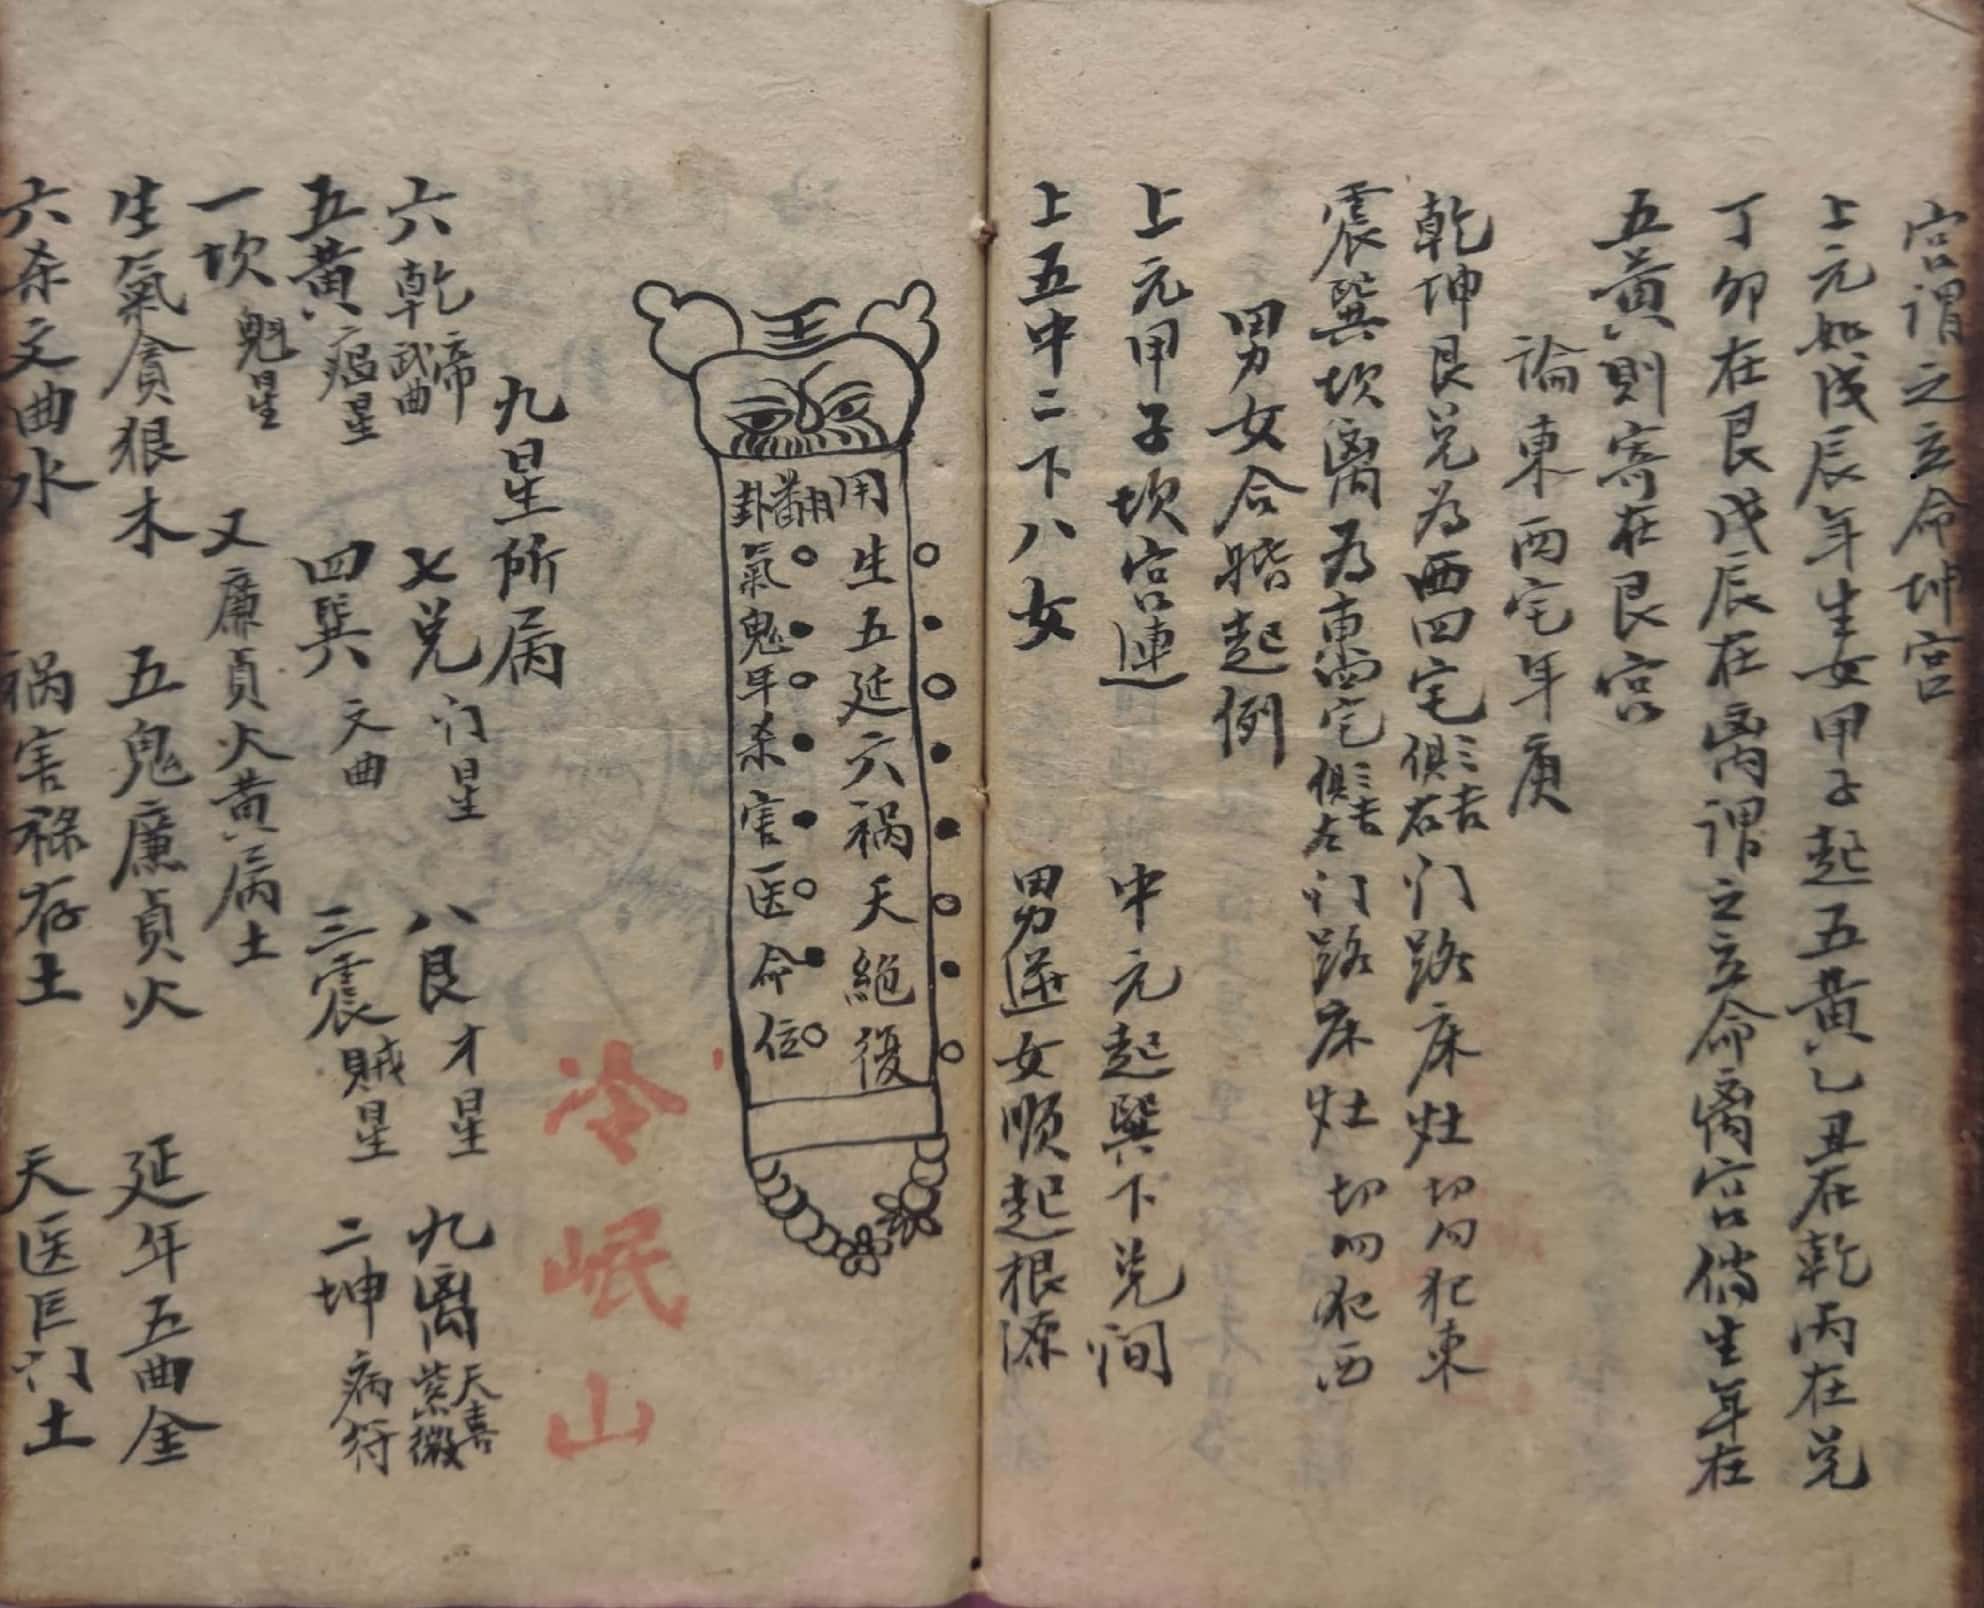 宫谓之立命坤宫
上元如戊辰年生女甲子起五黄乙丑在乾丙在兑
丁卯在艮戊辰在离谓之立命离宫倘生年在
五黄则寄在艮宫
論東西宅年庚
乾坤艮兑为西四宅俱三吉右门路床灶切勿犯東
震巽坎离为東四宅俱三吉左门路床灶切勿犯西
男女合婚起例
上元甲子坎宫連 中元起巽下兑间
上五中二下八女 男逆女顺起根源
王
用翻卦
生氣
五鬼
延年
六杀
祸害
天医
絶命
復位
九星所属
六乾帝武曲 七兑门星 八艮才星 九离天喜紫微
五黄瘟星 四巽文曲 三震贼星 二坤病符
一坎魁星 又廉貞火黄属土
生氣貪狼木 五鬼廉貞火 延年五曲金
六杀文曲水 祸害禄存土 天医巨门土
冷岷山